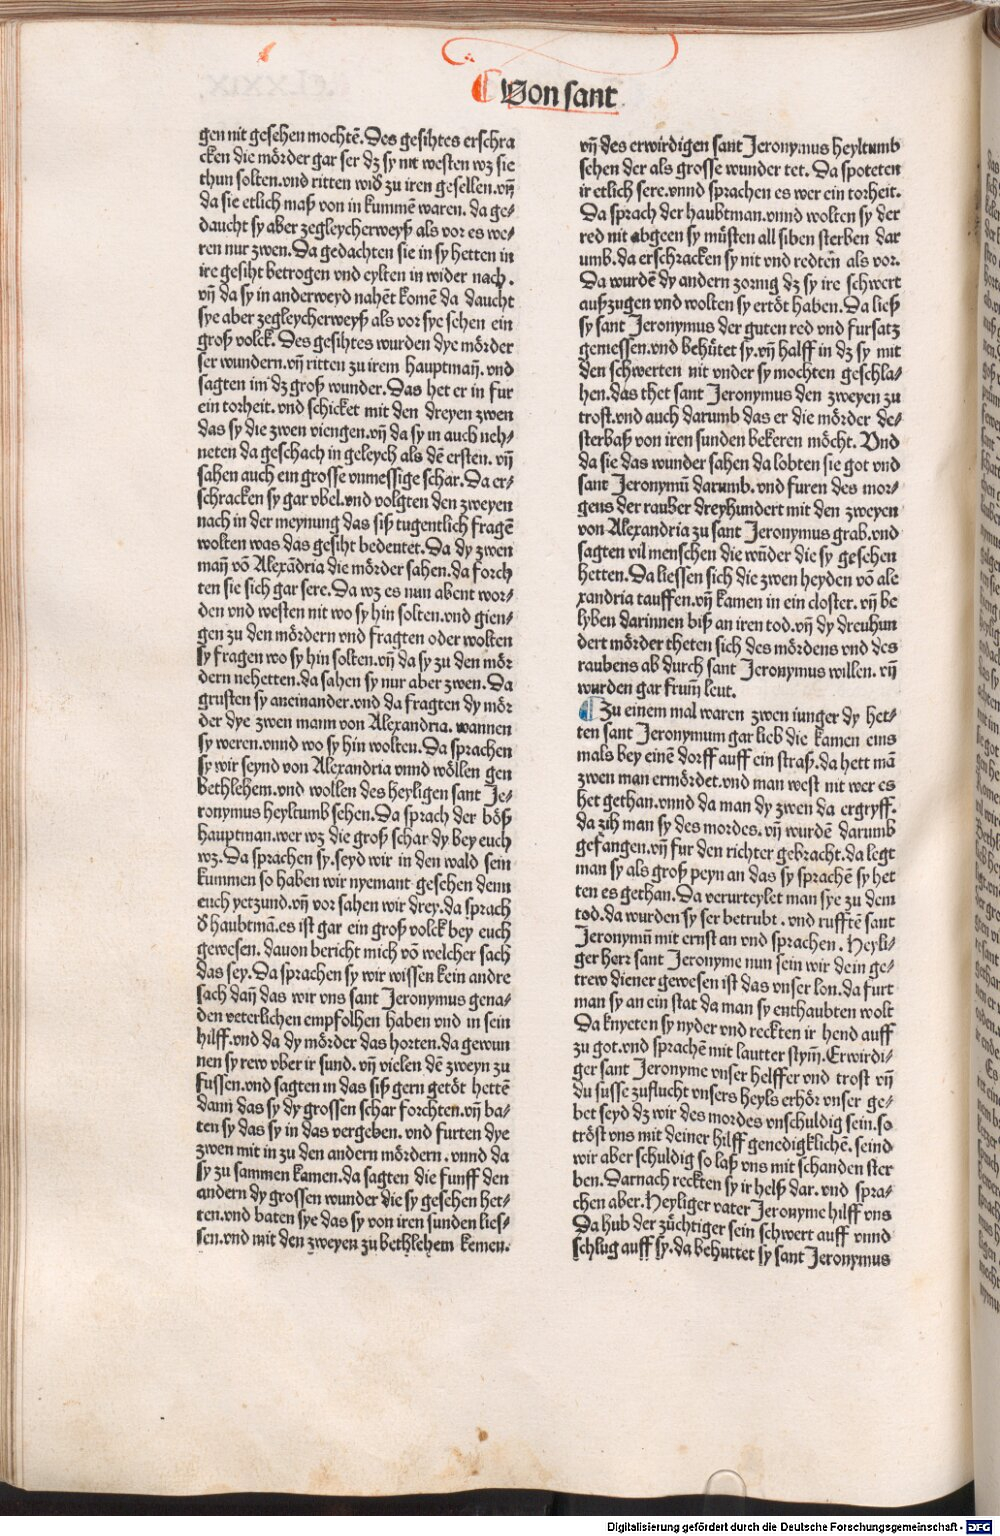 Von sant
gen nit gesehen mochtē. Des gesihtes erschra
cken die mörder gar ser dz sy nit westen wz sie
thun solten. vnd ritten wid̕ zu iren gesellen. vn̄
da sie etlich maß von in kummē waren. da ge⸗
daucht sy aber zegleycherweyß als vor es we⸗
ren nur zwen. Da gedachten sie in sy hetten in
ire gesiht betrogen vnd eylten in wider nach.
vn̄ da sy in anderweyd nahēt komē da daucht
sye aber zegleycherweyß als vor sye sehen ein
groß volck. Des gesihtes wurden dye mörder
ser wundern. vn̄ ritten zu irem hauptman̄. vnd
sagten im dz groß wunder. Das het er in fur
ein torheit. vnd schicket mit den dreyen zwen
das sy die zwen viengen. vn̄ da sy in auch neh⸗
neten da geschach in geleych als dē ersten. vn̄
sahen auch ein grosse vnmessige schar. Da er⸗
schracken sy gar vbel. vnd volgten den zweyen
nach in der meynung das siß tugentlich fragē
wolten was das gesiht bedeutet. Da dy zwen
man̄ vō Alexādria die mörder sahen. da forch
ten sie sich gar sere. Da wz es nun abent wor⸗
den vnd westen nit wo sy hin solten. vnd gien⸗
gen zu den mördern vnd fragten oder wolten
sy fragen wo sy hin solten. vn̄ da sy zu den mör
dern nehetten. da sahen sy nur aber zwen. Da
grusten sy aneinander. vnd da fragten dy mör
der dye zwen mann von Alexandria. wannen
sy weren. vnnd wo sy hin wolten. Da sprachen
sy wir seynd von Alexandria vnnd wöllen gen
bethlehem. vnd wollen des heyligen sant Je⸗
ronymus heyltumb sehen. Da sprach der böß
hauptman. wer wz die groß schar dy bey euch
wz. Da sprachen sy. seyd wir in den wald sein
kummen so haben wir nyemant gesehen denn
euch yetzund. vn̄ vor sahen wir drey. da sprach
d̕ haubtmā. es ist gar ein groß volck bey euch
gewesen. dauon bericht mich vō welcher sach
das sey. Da sprachen sy wir wissen kein andre
sach dan̄ das wir vns sant Jeronymus gena⸗
den veterlichen empfolhen haben vnd in sein
hilff. vnd da dy mörder das horten. da gewun
nen sy rew vber ir sund. vn̄ vielen dē zweyn zu
fussen. vnd sagten in das siß gern getöt hettē
dann das sy dy grossen schar forchten. vn̄ ba⸗
ten sy das sy in das vergeben. vnd furten dye
zwen mit in zu den andern mördern. vnnd da
sy zu sammen kamen. da sagten die funff den
andern dy grossen wunder die sy gesehen het⸗
ten. vnd baten sye das sy von iren sunden lies⸗
sen. vnd mit den zweyen zu bethlehem kemen.
vn̄ des erwirdigen sant Jeronymus heyltumb
sehen der als grosse wunder tet. Da spoteten
ir etlich sere. vnnd sprachen es wer ein torheit.
Da sprach der haubtman. vnnd wolten sy der
red nit abgeen sy müsten all siben sterben dar
umb. da erschracken sy nit vnd redten als vor.
Da wurdē dy andern zornig dz sy ire schwert
außzugen vnd wolten sy ertöt haben. Da ließ
sy sant Jeronymus der guten red vnd fursatz
geniessen. vnd behütet sy. vn̄ halff in dz sy mit
den schwerten nit vnder sy mochten geschla⸗
hen. das thet sant Jeronymus den zweyen zu
trost. vnd auch darumb das er die mörder de⸗
sterbaß von iren sunden bekeren möcht. Vnd
da sie das wunder sahen da lobten sie got vnd
sant Jeronymū darumb. vnd furen des mor⸗
gens der rauber dreyhundert mit den zweyen
von Alexandria zu sant Jeronymus grab. vnd
sagten vil menschen die wūder die sy gesehen
hetten. Da liessen sich die zwen heyden vō ale
xandria tauffen. vn̄ kamen in ein closter. vn̄ be
lyben darinnen biß an iren tod. vn̄ dy dreuhun
dert mörder theten sich des mördens vnd des
raubens ab durch sant Jeronymus willen. vn̄
wurden gar frum̄ leut.
Zu einem mal waren zwen iunger dy het⸗
ten sant Jeronymum gar lieb die kamen eins
mals bey einē dorff auff ein straß. da hett mā
zwen man ermördet. vnd man west nit wer es
het gethan. vnnd da man dy zwen da ergryff.
da zih man sy des mordes. vn̄ wurdē darumb
gefangen. vn̄ fur den richter gebracht. da legt
man sy als groß peyn an das sy sprachē sy het
ten es gethan. Da verurteylet man sye zu dem
tod. da wurden sy ser betrubt. vnd rufftē sant
Jeronymū mit ernst an vnd sprachen. Heyli⸗
ger herr sant Jeronyme nun sein wir dein ge⸗
trew diener gewesen ist das vnser lon. da furt
man sy an ein stat da man sy enthaubten wolt
Da knyeten sy nyder vnd reckten ir hend auff
zu got. vnd sprachē mit lautter stym̄. Erwirdi⸗
ger sant Jeronyme vnser helffer vnd trost vn̄
du susse zuflucht vnsers heyls erhör vnser ge⸗
bet seyd dz wir des mordes vnschuldig sein. so
tröst vns mit deiner hilff genedigklichē. seind
wir aber schuldig so laß vns mit schanden ster
ben. Darnach reckten sy ir helß dar. vnd spra⸗
chen aber. Heyliger vater Jeronyme hilff vns
Da hub der züchtiger sein schwert auff vnnd
schlug auff sy. da behuttet sy sant Jeronymus
Digitalisierung gefördert durch die Deutsche Forschungsgemeinschaft - DFG